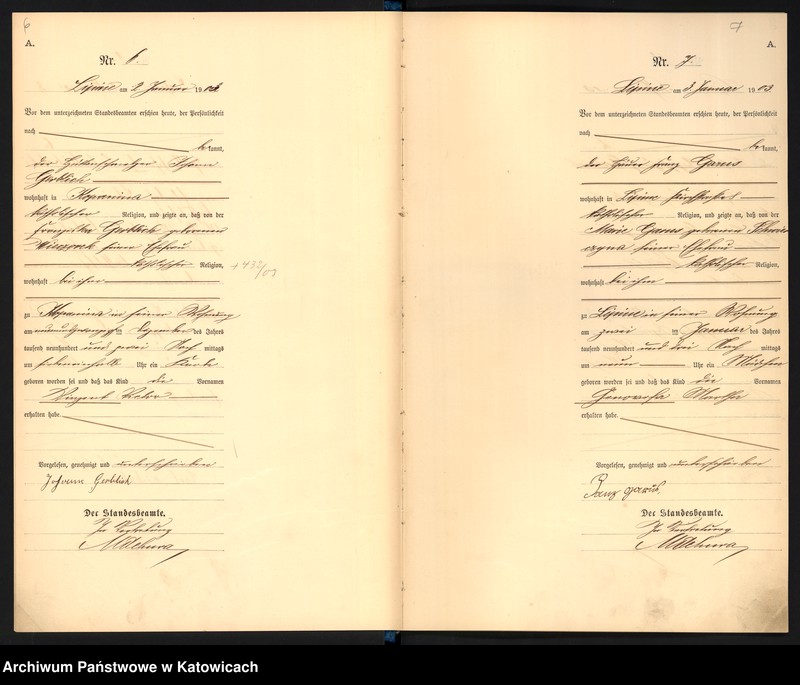 6
A.
Nr. 6.
Lipine am 2 Januar 1903
Vor dem unterzeichneten Standesbeamten erschien heute, der Persönlichkeit
nach
bekannt,
der Johann
Gerblich
wohnhaft in Kopanina
katholischer Religion, und zeigte an, daß von der
Franziska Gerblich geborenen
seiner Ehefrau
katholischer Religion,
wohnhaft bei ihm
zu Kopanina in seiner Wohnung
am Dezember des Jahres
tausend neunhundert und zwei Nachmittags
um Uhr ein Knabe
geboren worden sei und daß das Kind die Vornamen
Vinzent
erhalten habe.
Vorgelesen, genehmigt und unterschrieben
Johann Gerblich
Der Standesbeamte.
In Vertretung
7
A.
Nr. 7.
Lipine am 3 Januar 1903
Vor dem unterzeichneten Standesbeamten erschien heute, der Persönlichkeit
nach
bekannt,
der Häuer Franz Garus
wohnhaft in Lipine
katholischer Religion, und zeigte an, daß von der
Marie Garus geborenen
seiner Ehefrau
katholischer Religion,
wohnhaft bei ihm
zu Lipine in seiner Wohnung
am zwei im Januar des Jahres
tausend neunhundert und drei Nachmittags
um neun Uhr ein Mädchen
geboren worden sei und daß das Kind die Vornamen
Genovefa Martha
erhalten habe.
Vorgelesen, genehmigt und unterschrieben
Franz garus
Der Standesbeamte.
In Vertretung
Archiwum Państwowe w Katowicach